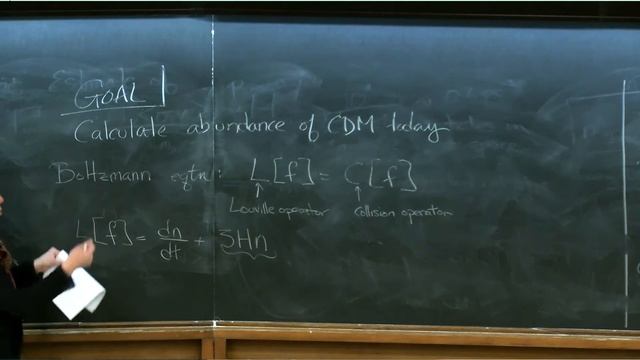 GOAL
Calculate abundance of CDM today
Boltzmann eqtn: L[f] = C[f]
Liouville operator Collision operator
L[f] = dn/dt + 3Hn